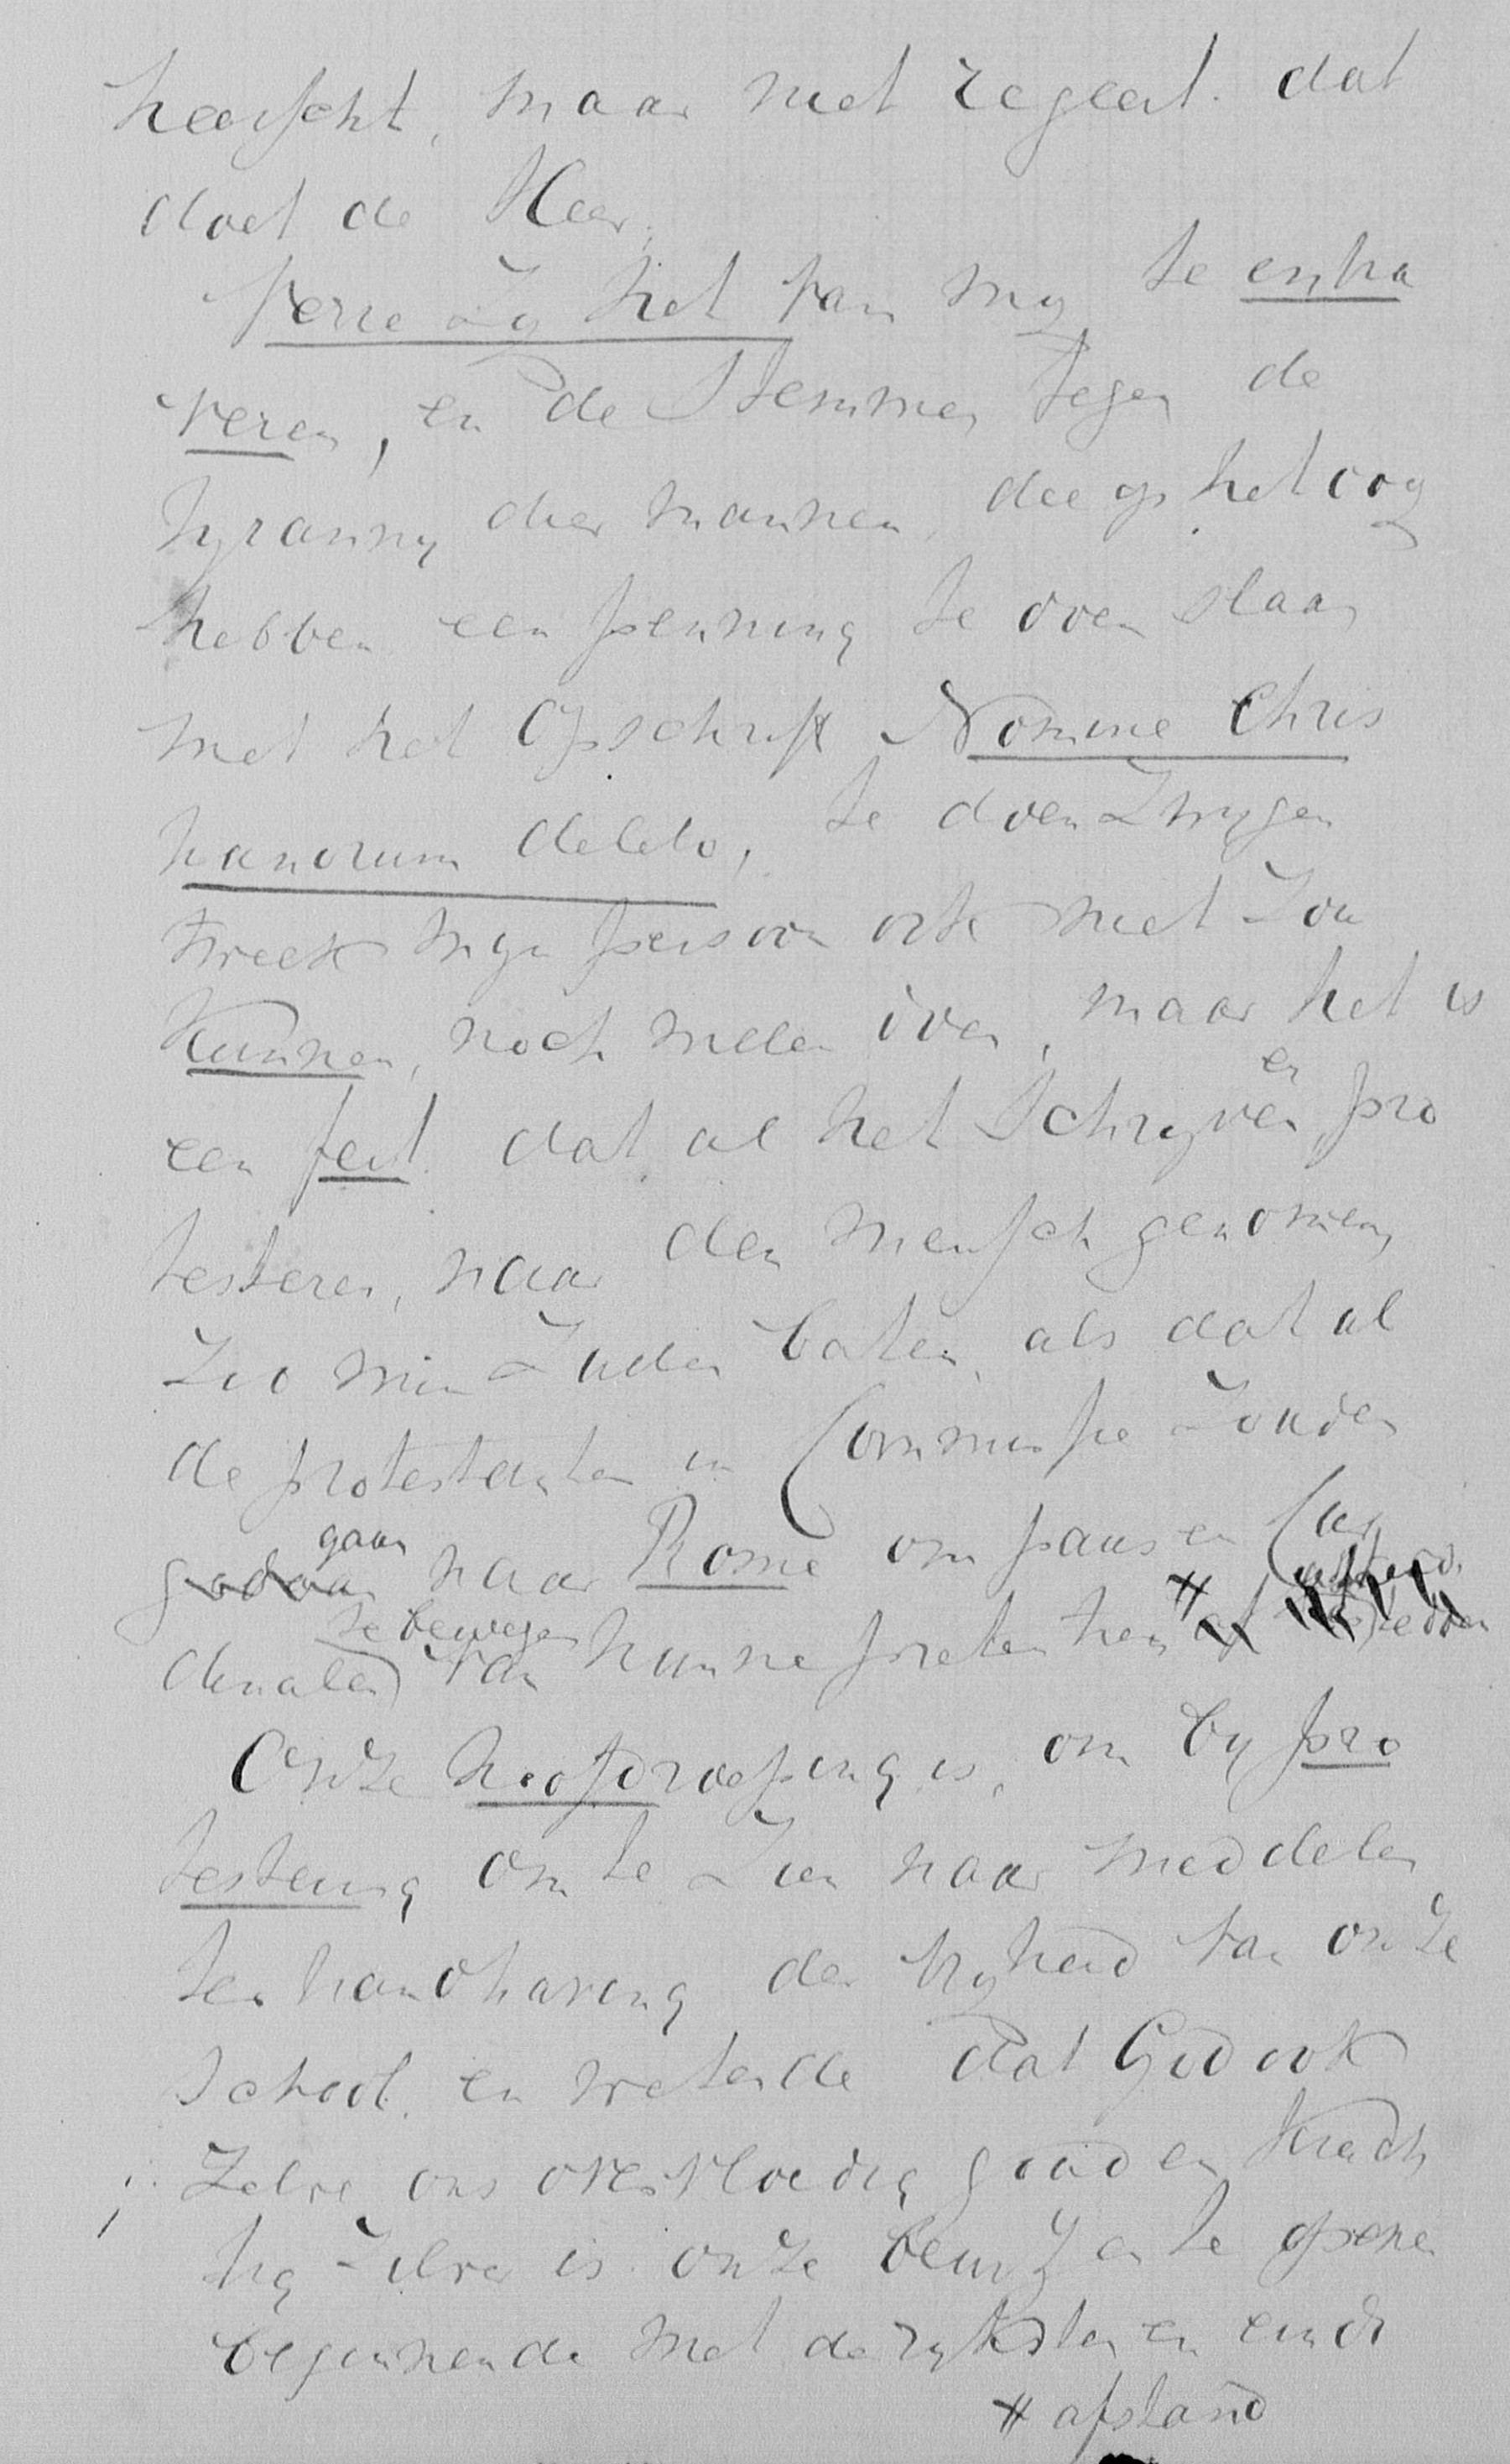 heerscht, maar niet regeert. dat
doet de Heer.
Verre zy het van my te entra
veren, en de Stemmen tegen de
tyranny dier mannen, die op het oog
hebben een penning te doen slaan
met het Opschrift Nomine Chris
tianorum deleto, te doen zwygen
twelk myn persoon ook niet zou
kunnen, noch willen doen, maar het is
een feit dat al het Schryven en pro
testeren, naar den mensch genomen
zoo min zuden baten, als dat al
de protestanten in Commissie zouden
gaan naar Rome om paus en Car
dinalen te bewegen van hunne pretentien #
Onze hoofdroeping is, om by pro
testering om te zien naar middelen
ter handhaving der vryheid van onze
School. en wetende dat God ook
Zelve ons overvloedig goud en
hy zelve is onze beurs en te openen
beginnende met de ryksten en eindi
# afstand